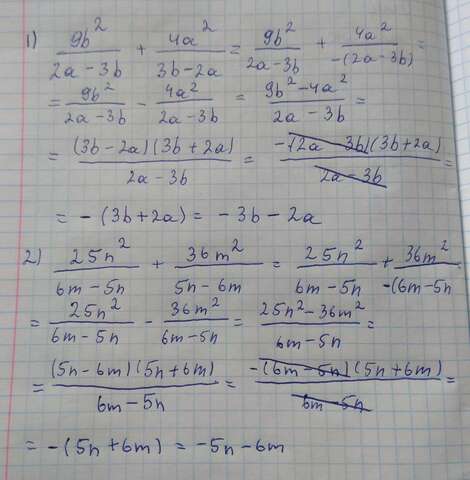 1) 9b²/(2a-3b) + 4a²/(3b-2a) = 9b²/(2a-3b) + 4a²/-(2a-3b) =
= 9b²/(2a-3b) - 4a²/(2a-3b) = (9b²-4a²)/(2a-3b) =
= (3b-2a)(3b+2a)/(2a-3b) = -(2a-3b)(3b+2a)/(2a-3b) =
= -(3b+2a) = -3b-2a
2) 25n²/(6m-5n) + 36m²/(5n-6m) = 25n²/(6m-5n) + 36m²/-(6m-5n
= 25n²/(6m-5n) - 36m²/(6m-5n) = (25n²-36m²)/(6m-5n) =
= (5n-6m)(5n+6m)/(6m-5n) = -(6m-5n)(5n+6m)/(6m-5n) =
= -(5n+6m) = -5n-6m